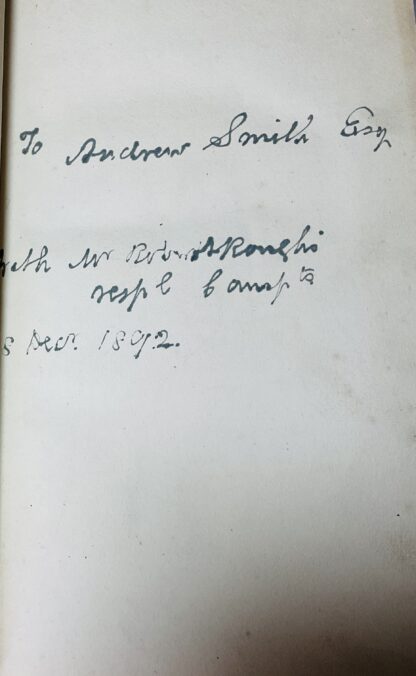 To Andrew Smith Esq
with Mr Robert Rough's
resp l Compts
8 Decr. 1892.